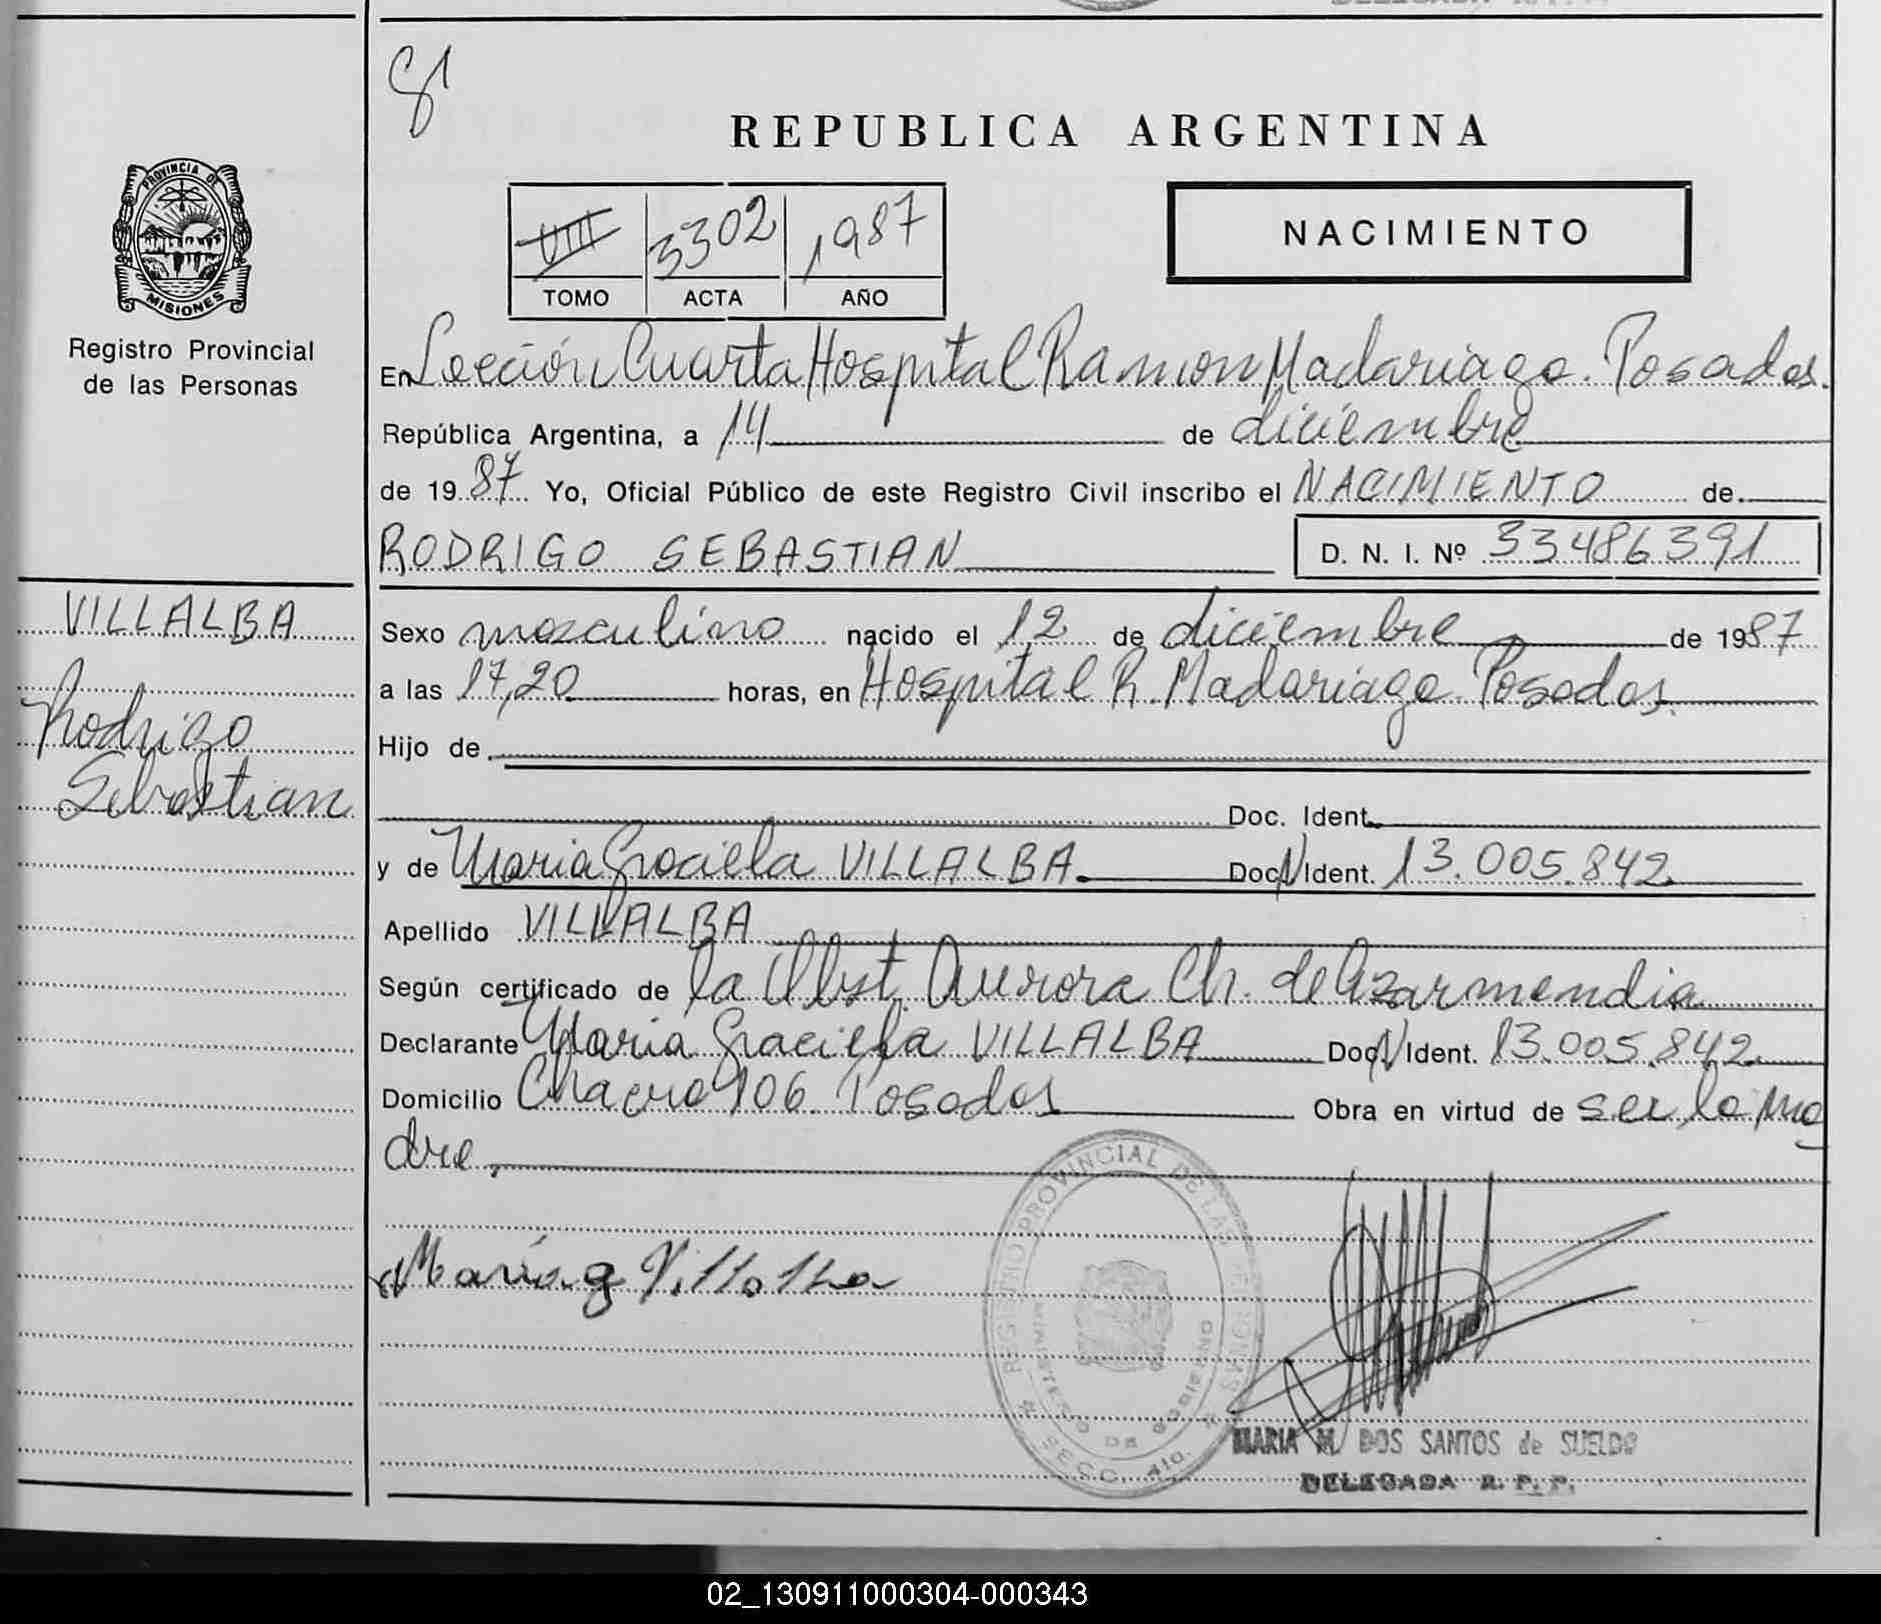 REPUBLICA ARGENTINA
PROVINCIA DE
MISIONES
Registro Provincial
de las Personas
VIII 3302 1987
TOMO ACTA AÑO
NACIMIENTO
En Sección Cuarta Hospital Ramon Madariaga. Posadas.
República Argentina, a 14 de diciembre
de 1987 Yo, Oficial Público de este Registro Civil inscribo el NACIMIENTO de
RODRIGO SEBASTIAN D. N. I. Nº 33486391
VILLALBA
Rodrigo
Sebastian
Sexo masculino nacido el 12 de diciembre de 1987
a las 17,20 horas, en Hospital R. Madariaga. Posadas.
Hijo de
Doc. Ident.
y de Maria Graciela VILLALBA. Doc N Ident. 13.005.842
Apellido VILLALBA
Según certificado de la Obst. Aurora Ch. de Azarmendia
Declarante Maria Graciela VILLALBA Doc N Ident. 13.005.842
Domicilio Chacra 106. Posadas Obra en virtud de ser la ma
dre.
Maria g Villalba
REGISTRO PROVINCIAL DE LAS PERSONAS
MINISTERIO DE GOBIERNO
SECC. 4ta.
MARIA M. DOS SANTOS de SUELDO
DELEGADA R. P. P.
02_130911000304-000343